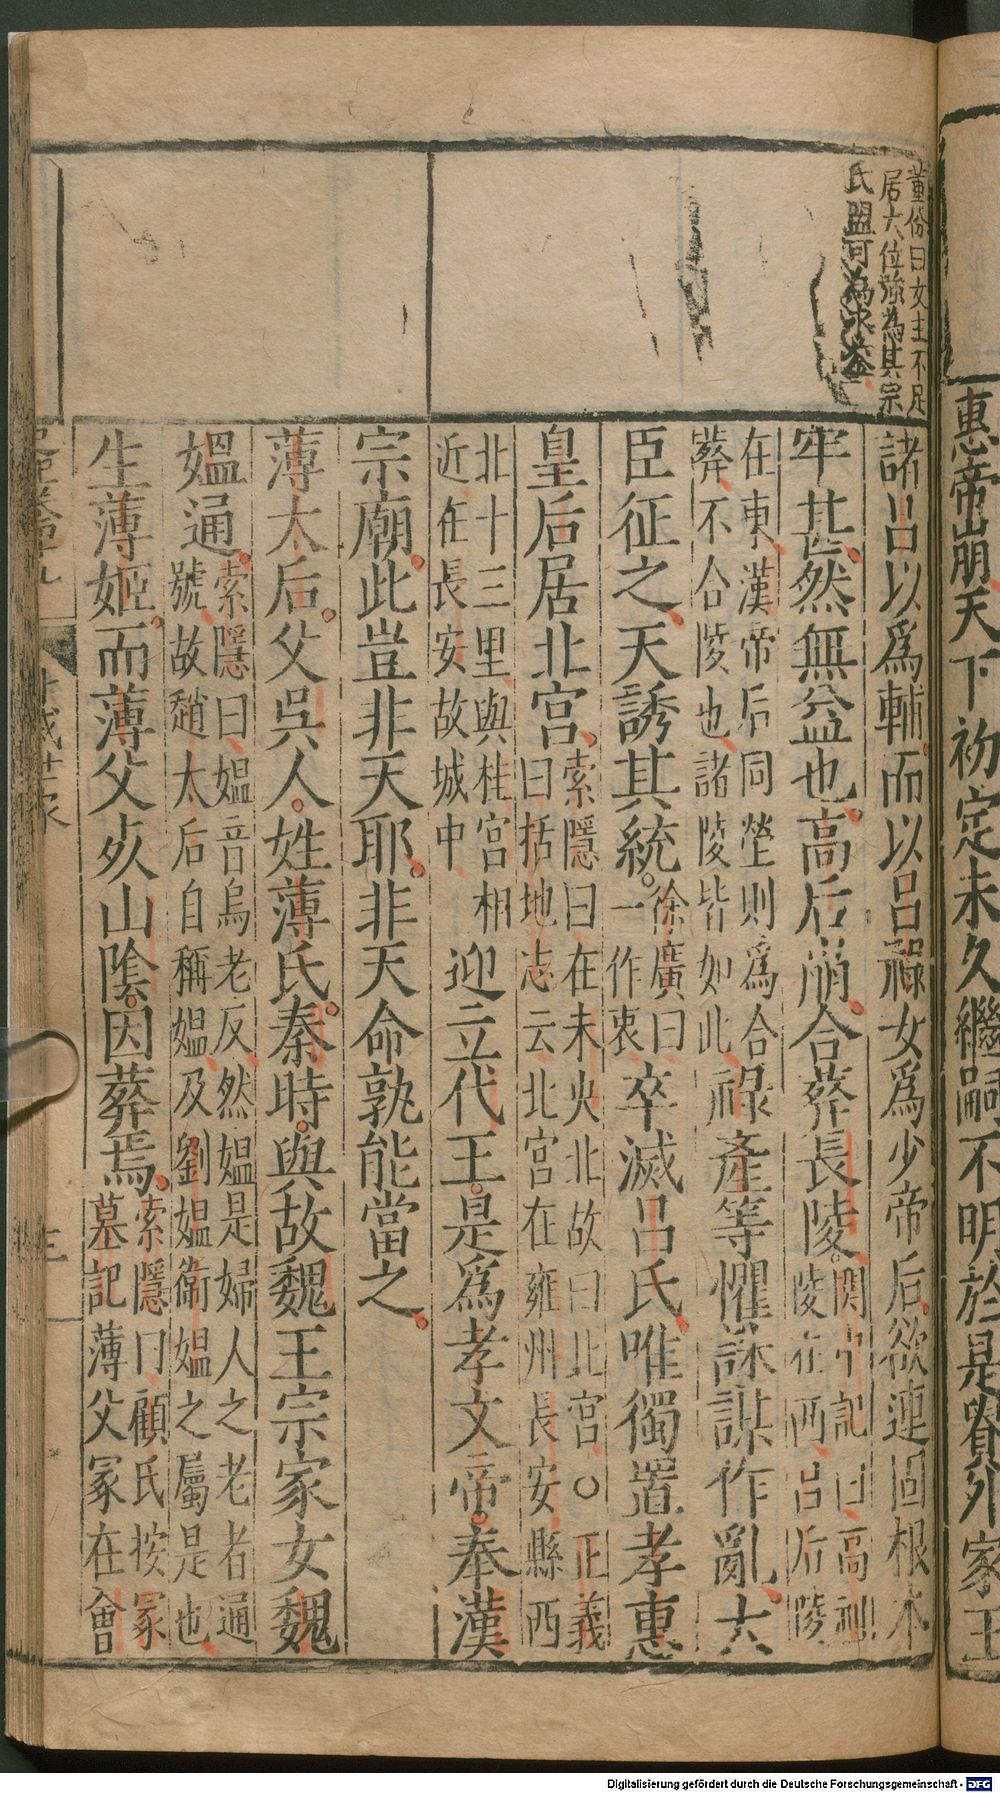 惠帝崩天下初定未久繼嗣不明於是貴外家王
董份曰女主不足
居大位強為其宗
氏盟可為永鑒
諸呂以爲輔而以呂祿女爲少帝后欲連固根本
牢甚然無益也高后崩合葬長陵
關中記曰高祖
陵在西呂后陵
在東漢帝后同塋則爲合
葬不合陵也諸陵皆如此
祿產等懼誅謀作亂大
臣征之天誘其統
徐廣曰
一作衷
卒滅呂氏唯獨置孝惠
皇后居北宮
索隱曰在未央北故曰北宮○正義
曰括地志云北宮在雍州長安縣西
北十三里與桂宮相
近在長安故城中
迎立代王是爲孝文帝奉漢
宗廟此豈非天耶非天命孰能當之
薄太后父吳人姓薄氏秦時與故魏王宗家女魏
媼通
索隱曰媼音烏老反然媼是婦人之老者通
號故趙太后自稱媼及劉媼衛媼之屬是也
生薄姬而薄父死山陰因葬焉
索隱曰顧氏按冢
墓記薄父冢在會
Digitalisierung gefördert durch die Deutsche Forschungsgemeinschaft - DFG